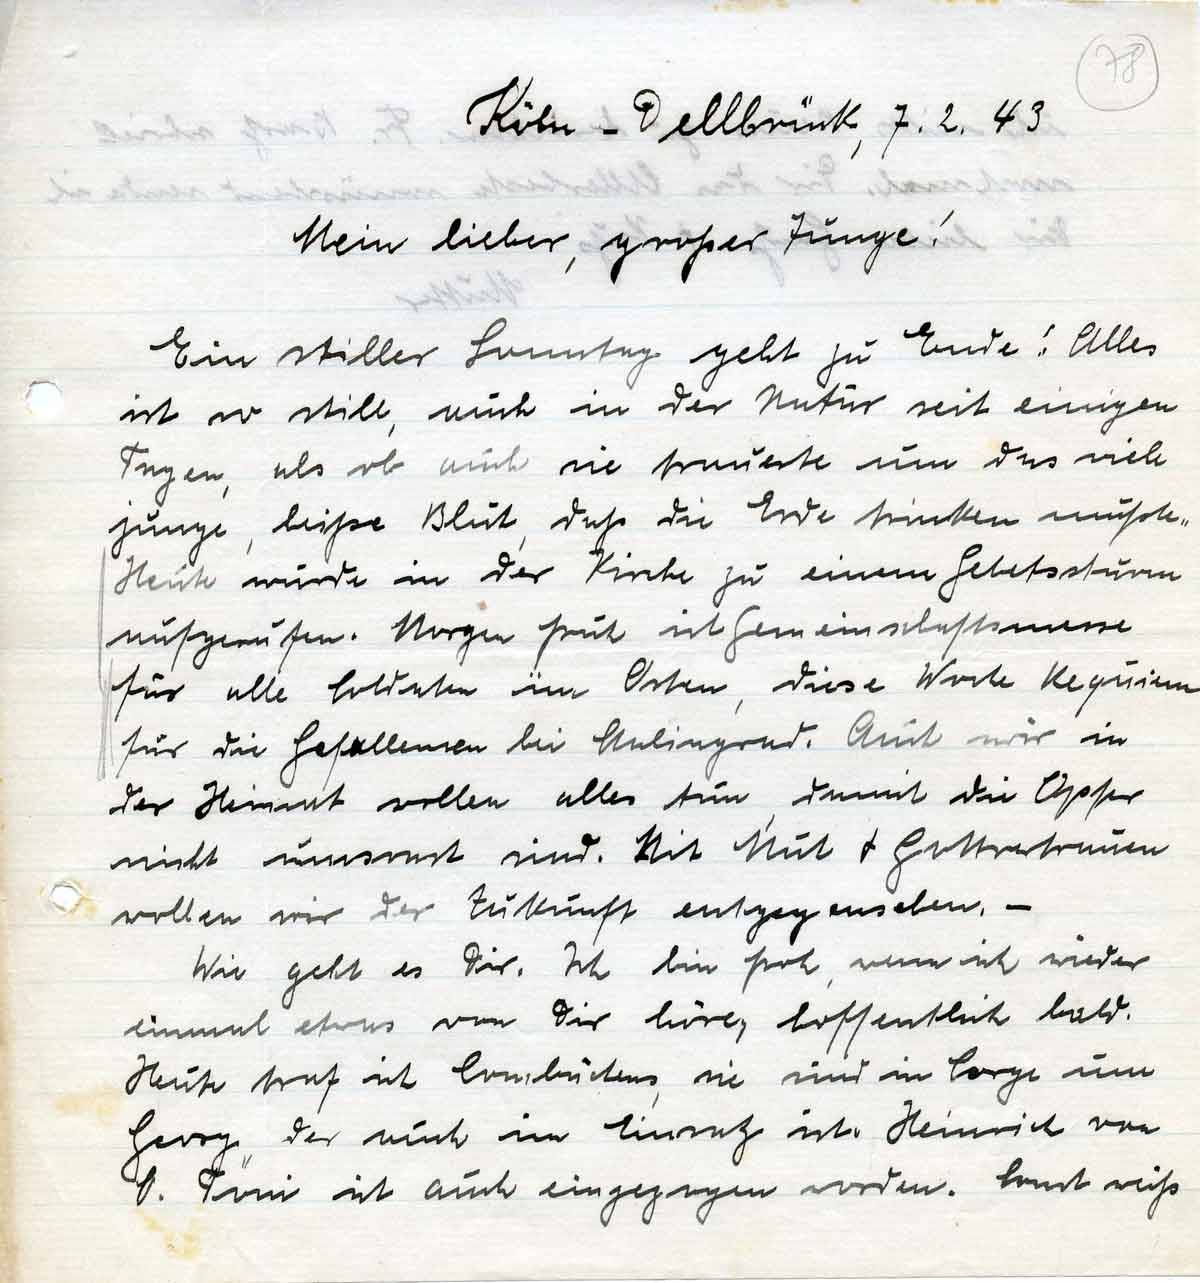 78
Köln - Dellbrück, 7. 2. 43
Mein lieber, großer Junge!
Ein stiller Sonntag geht zu Ende! Alles
ist so still, auch in der Natur seit einigen
Tagen, als ob auch sie trauerte um das viele
junge, heiße Blut, daß die Erde trinken mußte.
Heute wurde in der Kirche zu einem Gebetssturm
aufgerufen. Morgen früh ist Gemeinschaftsmesse
für alle Soldaten im Osten, diese Woche Requiem
für die Gefallenen bei Stalingrad. Auch wir in
der Heimat wollen alles tun, damit die Opfer
nicht umsonst sind. Mit Mut & Gottvertrauen
wollen wir der Zukunft entgegensehen. -
Wie geht es Dir. Ich bin froh, wenn ich wieder
einmal etwas von Dir höre, hoffentlich bald.
Heute traf ich sie sind in Sorge um
Georg, der auch im Einsatz ist. Heinrich von
O. Toni ist auch eingezogen worden. Sonst weiß